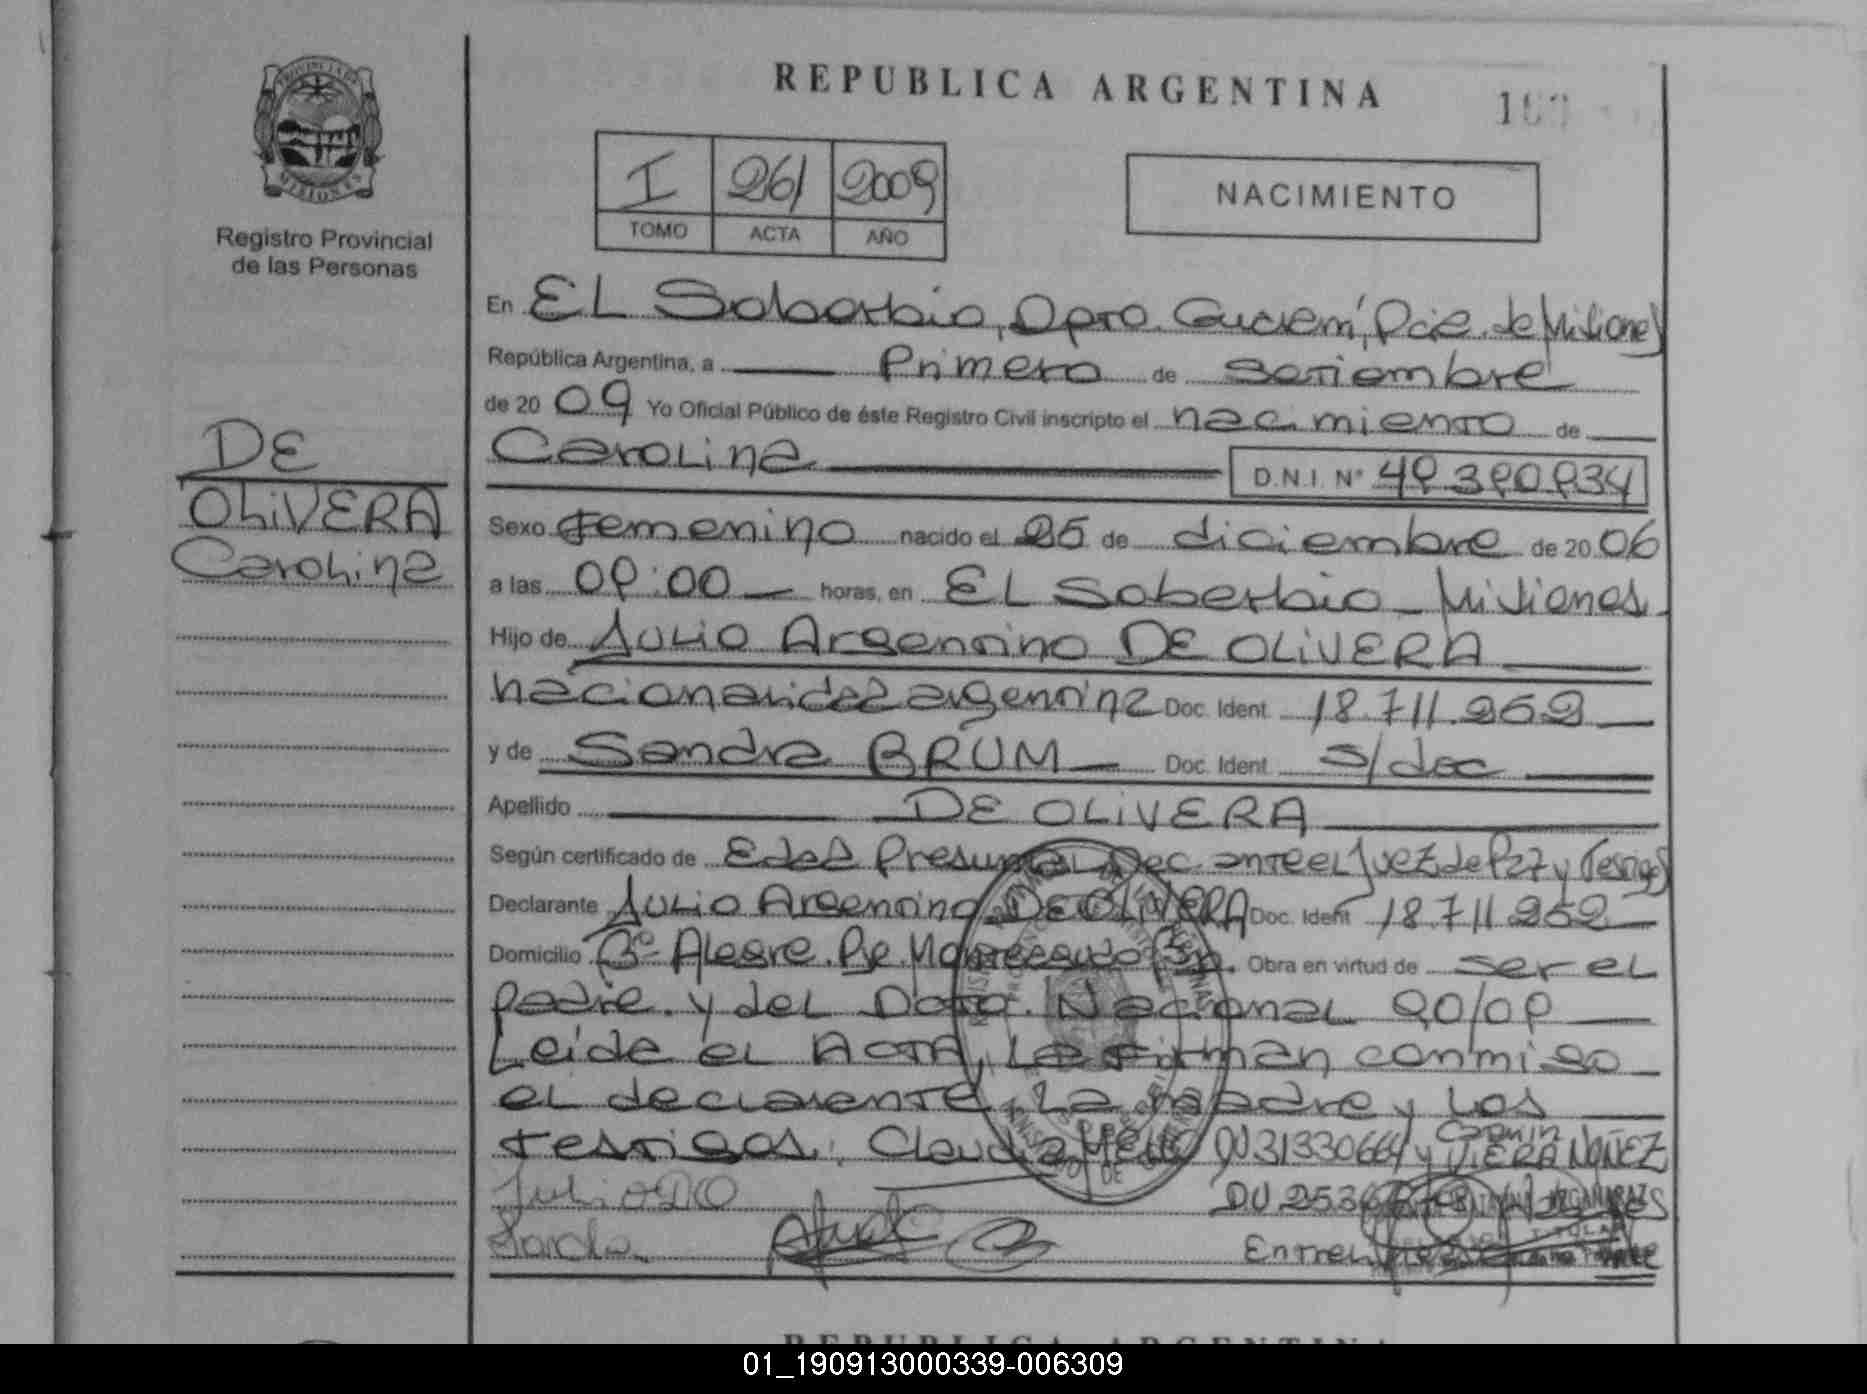 PROVINCIA DE
MISIONES
Registro Provincial
de las Personas
DE
OLIVERA
Carolina
REPUBLICA ARGENTINA
I 261 2009
TOMO ACTA AÑO
NACIMIENTO
En EL Soberbio, Dpto. Guaraní, Pcia. de Misiones
República Argentina, a Primero de Setiembre
de 20 09 Yo Oficial Público de éste Registro Civil inscripto el nacimiento de
Carolina D.N.I. Nº
Sexo Femenino nacido el 25 de diciembre de 20 06
a las 08:00 horas, en EL Soberbio - Misiones
Hijo de Julio Argentino DE OLIVERA
nacionalidad argentina Doc. Ident. 18.711.252
y de Sandra BRUM Doc. Ident. s/doc
Apellido DE OLIVERA
Según certificado de Edad Presunta Dec. ante el Juez de Paz y Testigos
Declarante Julio Argentino DE OLIVERA Doc. Ident. 18.711.252
Domicilio Bº Alegre. Obra en virtud de ser el
padre. y del Dcto. Nacional 90/09
Leída el ACTA, la Firman conmigo
el declarante, La madre y Los
testigos: Claudia DU 31330664 y VIERA NUÑEZ
Carmin
Julio DO DU
Sandra
REPUBLICA ARGENTINA
01_190913000339-006309